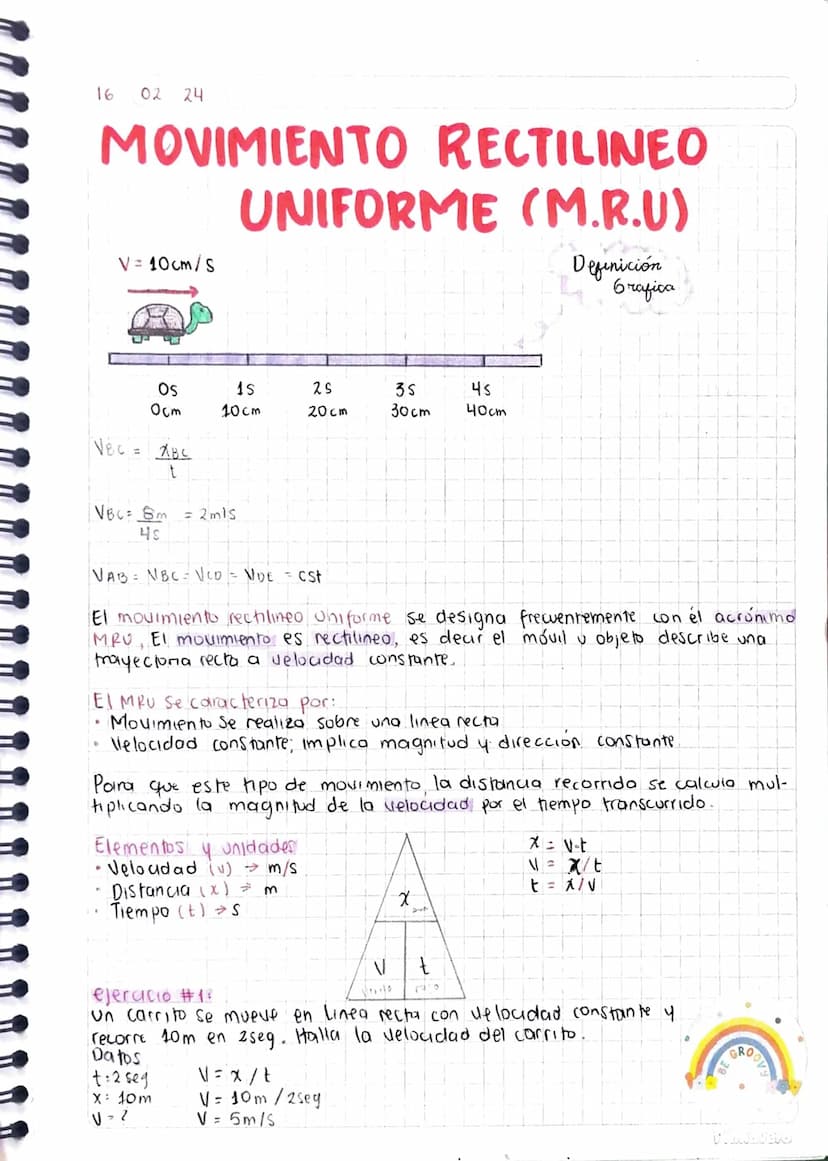 16 02 24
MOVIMIENTO RECTILINEO
UNIFORME (M.R.U)
V = 10cm/s
Definición
Grafica
0s 1s 2s 3s 4s
0cm 10cm 20cm 30cm 40cm
VBC = xBC
t
VBC = 8m = 2m/s
4s
VAB = VBC = VCD = VDE = cst
El movimiento rectilineo uniforme se designa frecuentemente con él acrónimo
MRU, El movimiento es rectilineo, es decir el móvil u objeto describe una
trayectoria recta a velocidad constante.
El MRU se caracteriza por:
• Movimiento se realiza sobre una linea recta
• Velocidad constante; implica magnitud y dirección constante
Para que este tipo de movimiento, la distancia recorrido se calcula mul-
tiplicando la magnitud de la velocidad por el tiempo transcurrido.
Elementos y unidades
• Velocidad (v) → m/s
• Distancia (x) → m
• Tiempo (t) → s
x
v t
x = v·t
v = x/t
t = x/v
ejercicio #1:
un carrito se mueve en linea recta con velocidad constante y
recorre 10m en 2seg. Halla la velocidad del carrito.
Datos
t: 2seg V = x/t
x: 10m V = 10m/2seg
V = ? V = 5m/s
BE GROOVY